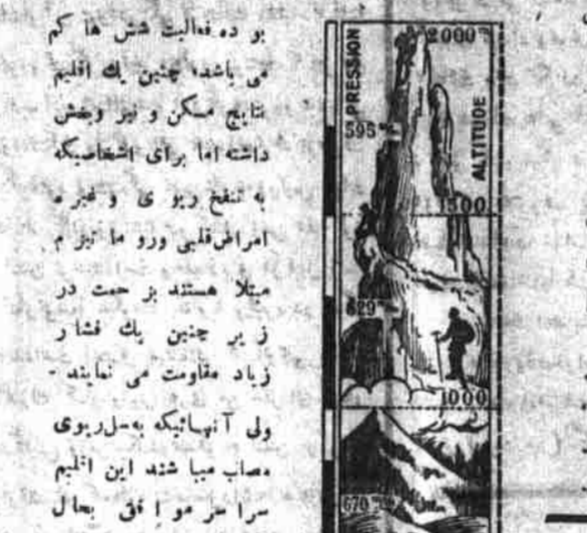 بو ده فعالیت شش ها کم
می باشد، چنین یك اقلیم
نتایج مسکن و نیز وبخش
داشته اما برای اشخاصیکه
به تنفخ ریو ی و غیر ه
امراض قلبی ورو ما تیز م
مبتلا هستند بز حمت در
ز یر چنین یك فشا ر
زیاد مقاومت می نمایند -
ولی آنهائیکه به سل ریوی
مصاب میبا شند این اقلیم
سرا سر مو ا فق بحال
PRESSION
2000
595
ALTITUDE
1500
629
1000
670